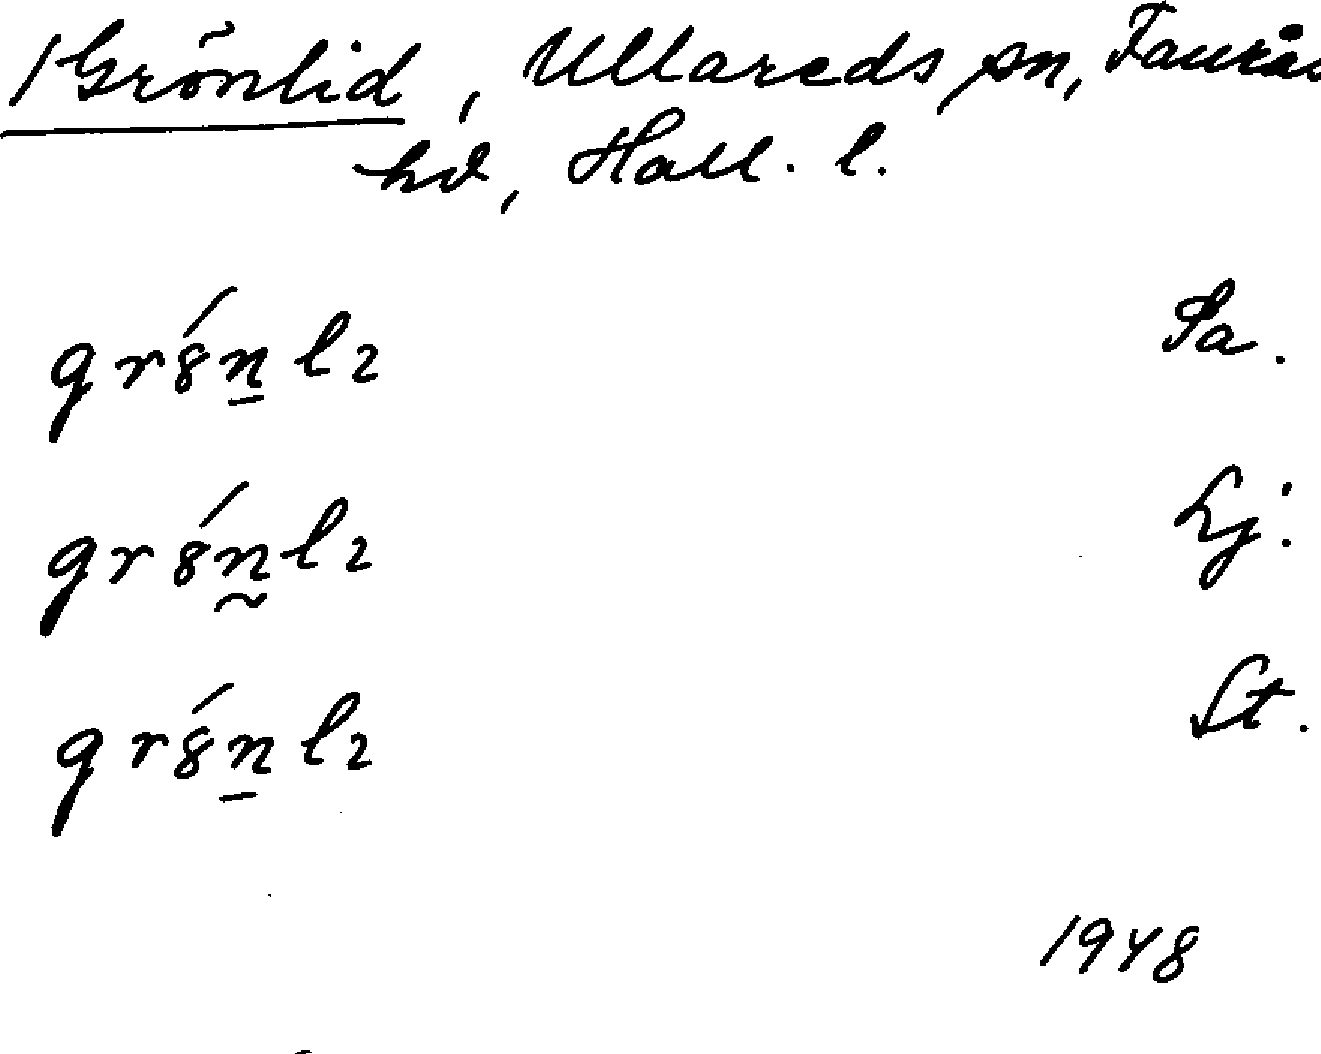 /Grönlid, Ullareds sn, Faurås
hd, Hall. l.
gr8́n̲ l2 Sa.
gr8́n̰ l2 Lj.
gr8́n̲ l2 St.
1948